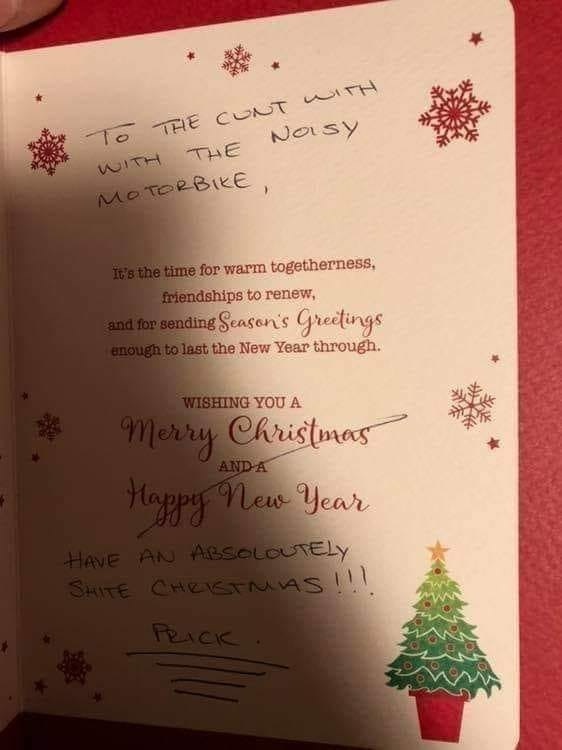 TO THE CUNT WITH
WITH THE NOISY
MOTORBIKE,
It's the time for warm togetherness,
friendships to renew,
and for sending Season's Greetings
enough to last the New Year through.
WISHING YOU A
Merry Christmas
AND A
Happy New Year
HAVE AN ABSOLOUTELY
SHITE CHRISTMAS !!!
PRICK.